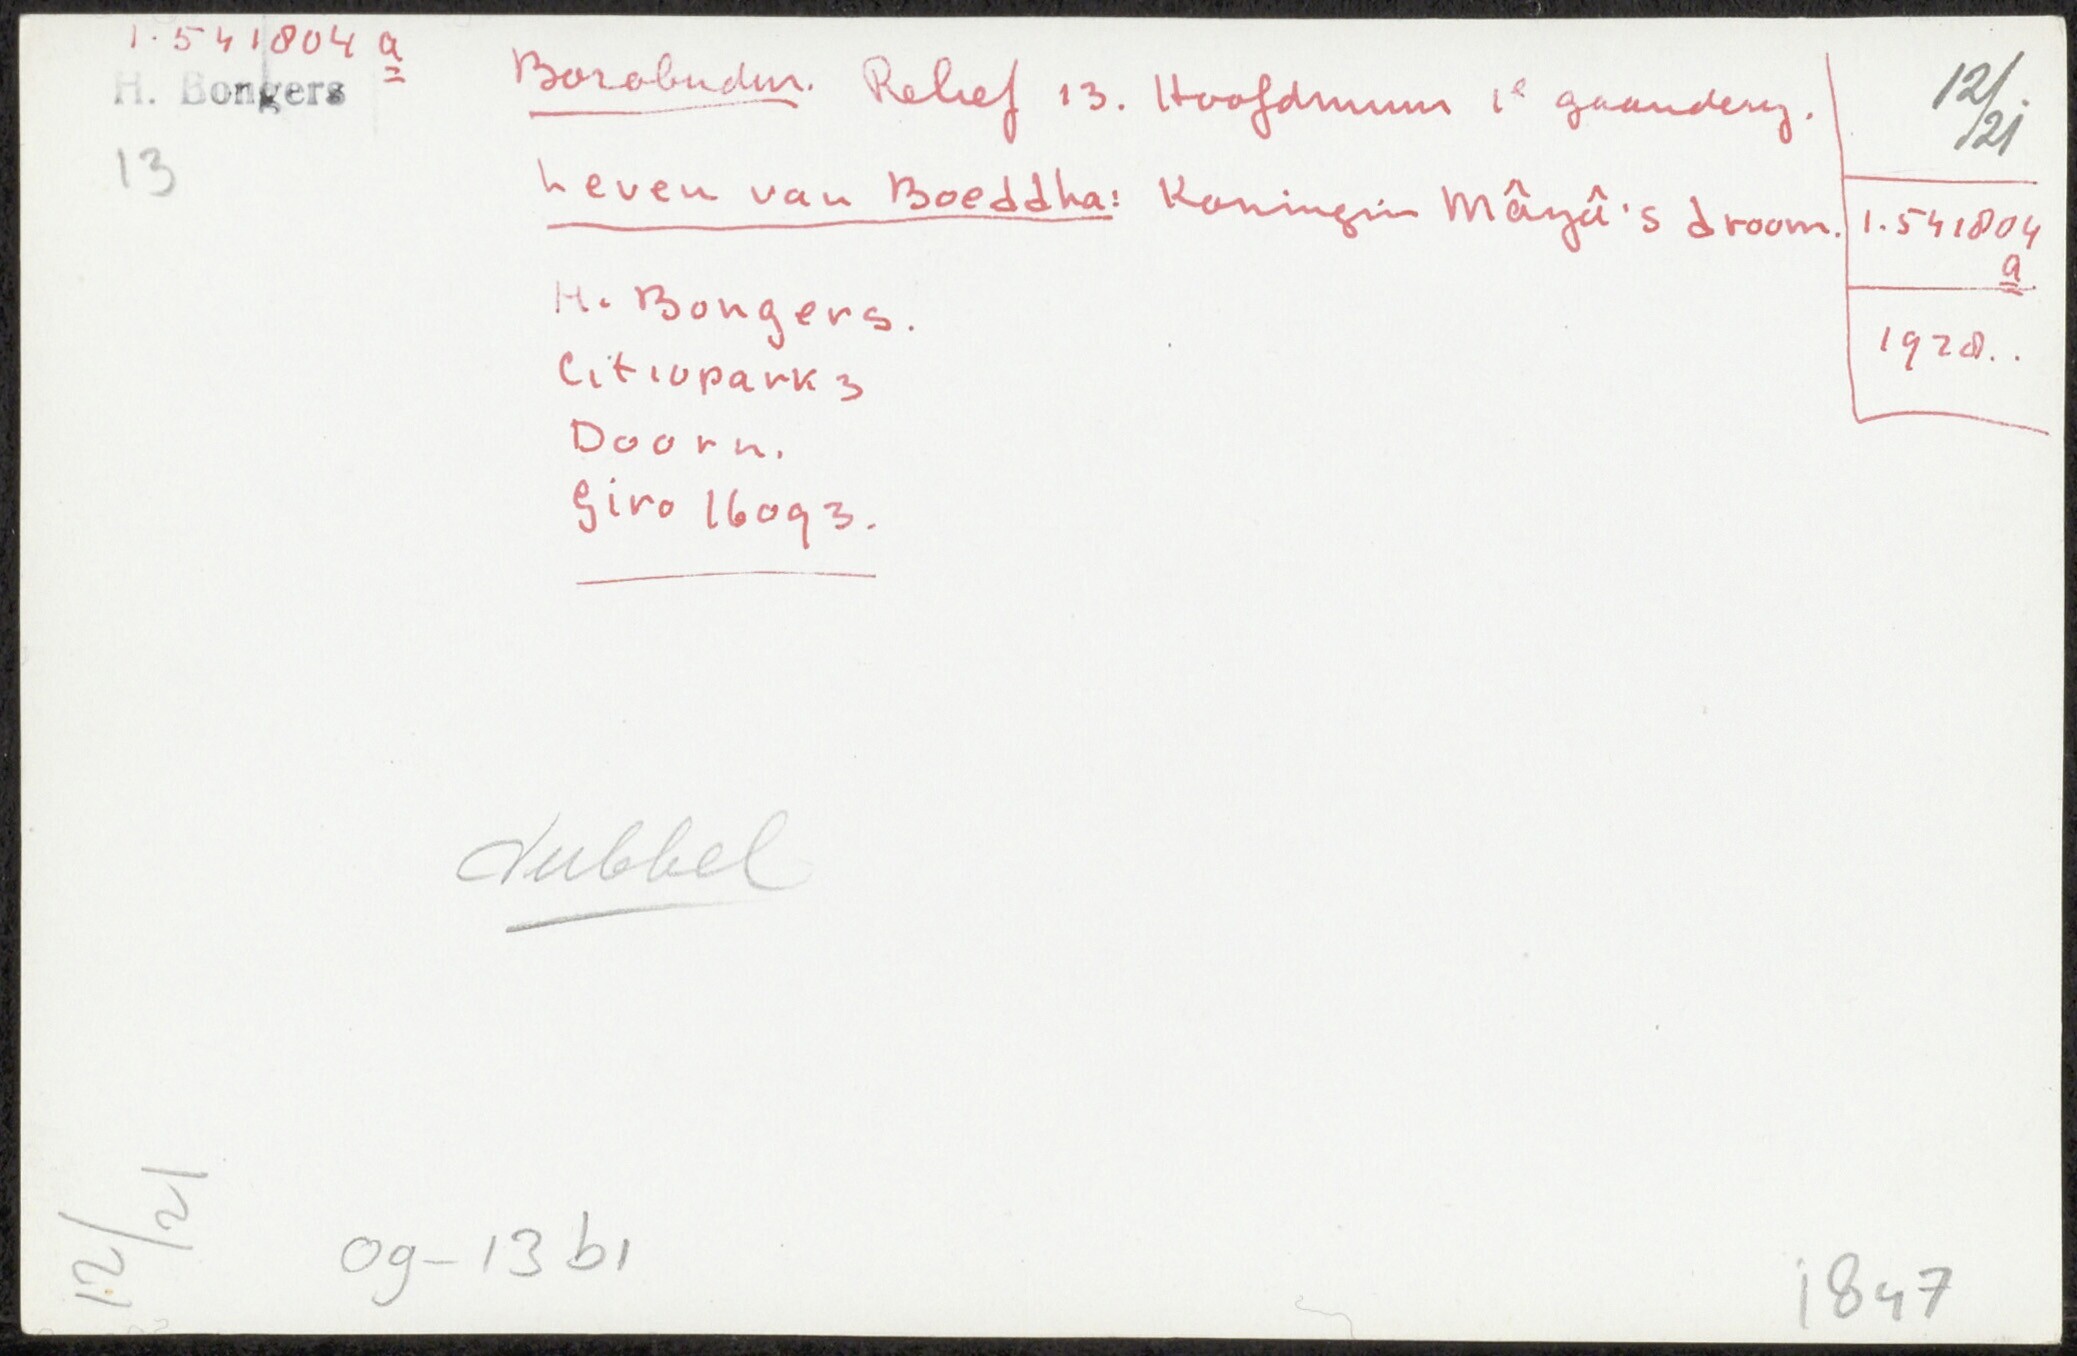 1.541804 a
H. Bongers
13
Borobudur. Relief 13. Hoofdmuur 1e gaanderij.
Leven van Boeddha: Koningin Mâyâ's droom.
H. Bongers.
Doorn.
Giro 16093.
12/21
1.541804
a
1928..
dubbel
12/21
og-13 b1
1847